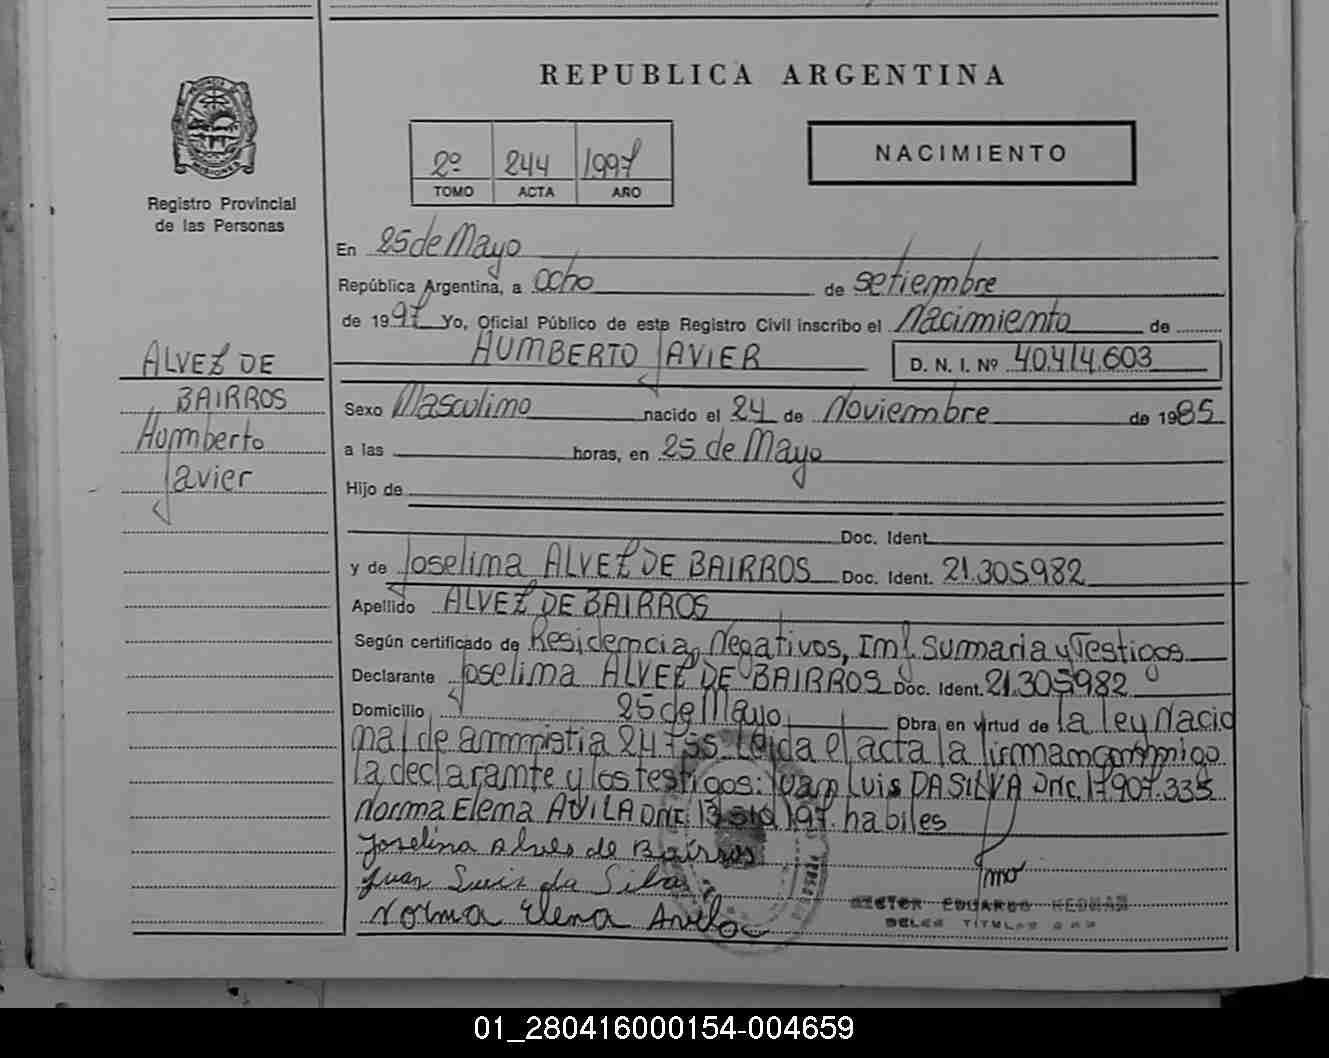 REPUBLICA ARGENTINA
2º 244 1997
TOMO ACTA AÑO
NACIMIENTO
MISIONES
Registro Provincial
de las Personas
En 25 de Mayo
República Argentina, a ocho de setiembre
de 1997 Yo, Oficial Público de este Registro Civil inscribo el Nacimiento de
HUMBERTO JAVIER D. N. I. Nº 40.414.603
ALVEZ DE
BAIRROS
Humberto
Javier
Sexo Masculino nacido el 24 de Noviembre de 1985
a las horas, en 25 de Mayo
Hijo de
Doc. Ident.
y de Joselina ALVEZ DE BAIRROS Doc. Ident. 21.305.982
Apellido ALVEZ DE BAIRROS
Según certificado de Residencia, Negativos, Inf. Sumaria y Testigos
Declarante Joselina ALVEZ DE BAIRROS Doc. Ident. 21.305982
Domicilio 25 de Mayo Obra en virtud de la ley Nacio
nal de amnistia 24.755 Leida el acta la firman conmigo
la declarante y los testigos: Juan Luis DA SILVA DNI. 17.907.335
Norma Elena AVILA DNI: 13. 197. habiles
Joselina Alves de Bairros
Juan Luis da Silva
Norma Elena Avila
HECTOR EDUARDO
TITULAR
01_280416000154-004659